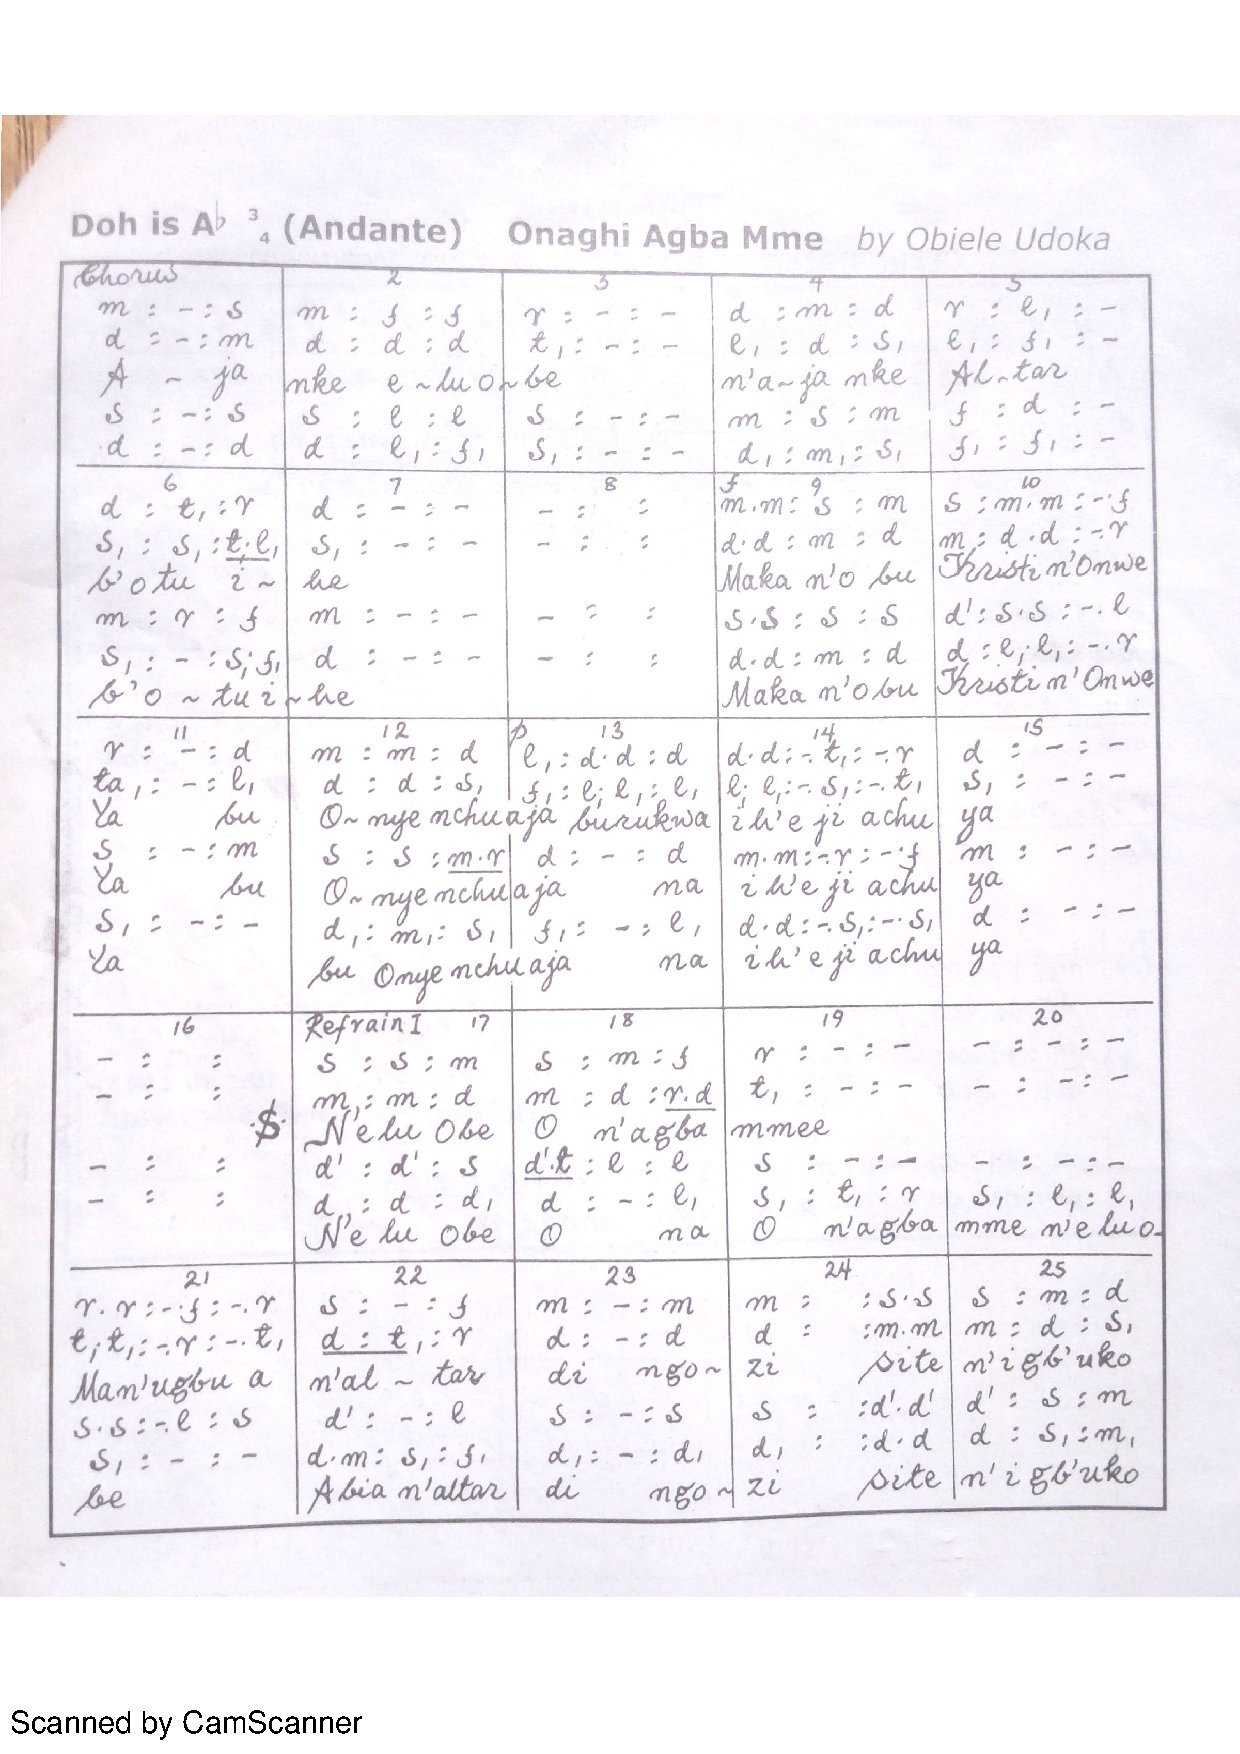 Doh is A♭ 3/4 (Andante) Onaghi Agba Mme by Obiele Udoka
Chorus 2 3 4 5
m : - : s | m : f : f | r : - : - | d : m : d | r : l, : -
d : - : m | d : d : d | t, : - : - | l, : d : s, | l, : f, : -
A - ja | nke e~lu o~be | n'a~ja nke | Al~tar
s : - : s | s : l : l | s : - : - | m : s : m | f : d : -
d : - : d | d : l, : f, | s, : - : - | d, : m, : s, | f, : f, : -
6 7 8 f 9 10
d : t, : r | d : - : - | - : : | m.m : s : m | s : m.m : -.f
s, : s, : t,.l, | s, : - : - | - : : | d.d : m : d | m : d.d : -.r
b'o tu i~ | he | Maka n'o bu | Kristi n'Onwe
m : r : f | m : - : - | - : : | s.s : s : s | d' : s.s : -.l
s, : - : s,.f, | d : - : - | - : : | d.d : m : d | d : l,.l, : -.r
b'o~tu i~he | Maka n'o bu | Kristi n'Onwe
11 12 p 13 14 15
r : - : d | m : m : d | l, : d.d : d | d.d : -.t, : -.r | d : - : -
ta, : - : l, | d : d : s, | f, : l,.l, : l, | l,.l, : -.s, : -.t, | s, : - : -
Ya bu | O~nye nchu aja burukwa | i h'e ji achu | ya
s : - : m | s : s : m.r | d : - : d | m.m : -.r : -.f | m : - : -
Ya bu | O~nye nchu aja na | i h'e ji achu | ya
s, : - : - | d, : m, : s, | f, : - : l, | d.d : -.s, : -.s, | d : - : -
Ya | bu Onye nchu aja na | i h'e ji achu | ya
16 Refrain I 17 18 19 20
- : : | s : s : m | s : m : f | r : - : - | - : - : -
- : : | m, : m : d | m : d : r.d | t, : - : - | - : - : -
N'elu Obe | O n'agba | mmee
- : : | d' : d' : s | d'.t : l : l | s : - : - | - : - : -
- : : | d, : d : d, | d : - : l, | s, : t, : r | s, : l, : l,
N'e lu Obe | O na | O n'agba | mme n'e lu o-
21 22 23 24 25
r.r : -.f : -.r | s : - : f | m : - : m | m : : s.s | s : m : d
t,.t, : -.r : -.t, | d : t, : r | d : - : d | d : : m.m | m : d : s,
Man'ugbu a | n'al~tar | di ngo~ | zi site | n'i gb'uko
s.s : -.l : s | d' : - : l | s : - : s | s : : d'.d' | d' : s : m
s, : - : - | d.m : s, : f, | d, : - : d, | d, : : d.d | d : s, : m,
be | Abia n'altar | di ngo~ | zi site | n'i gb'uko
Scanned by CamScanner